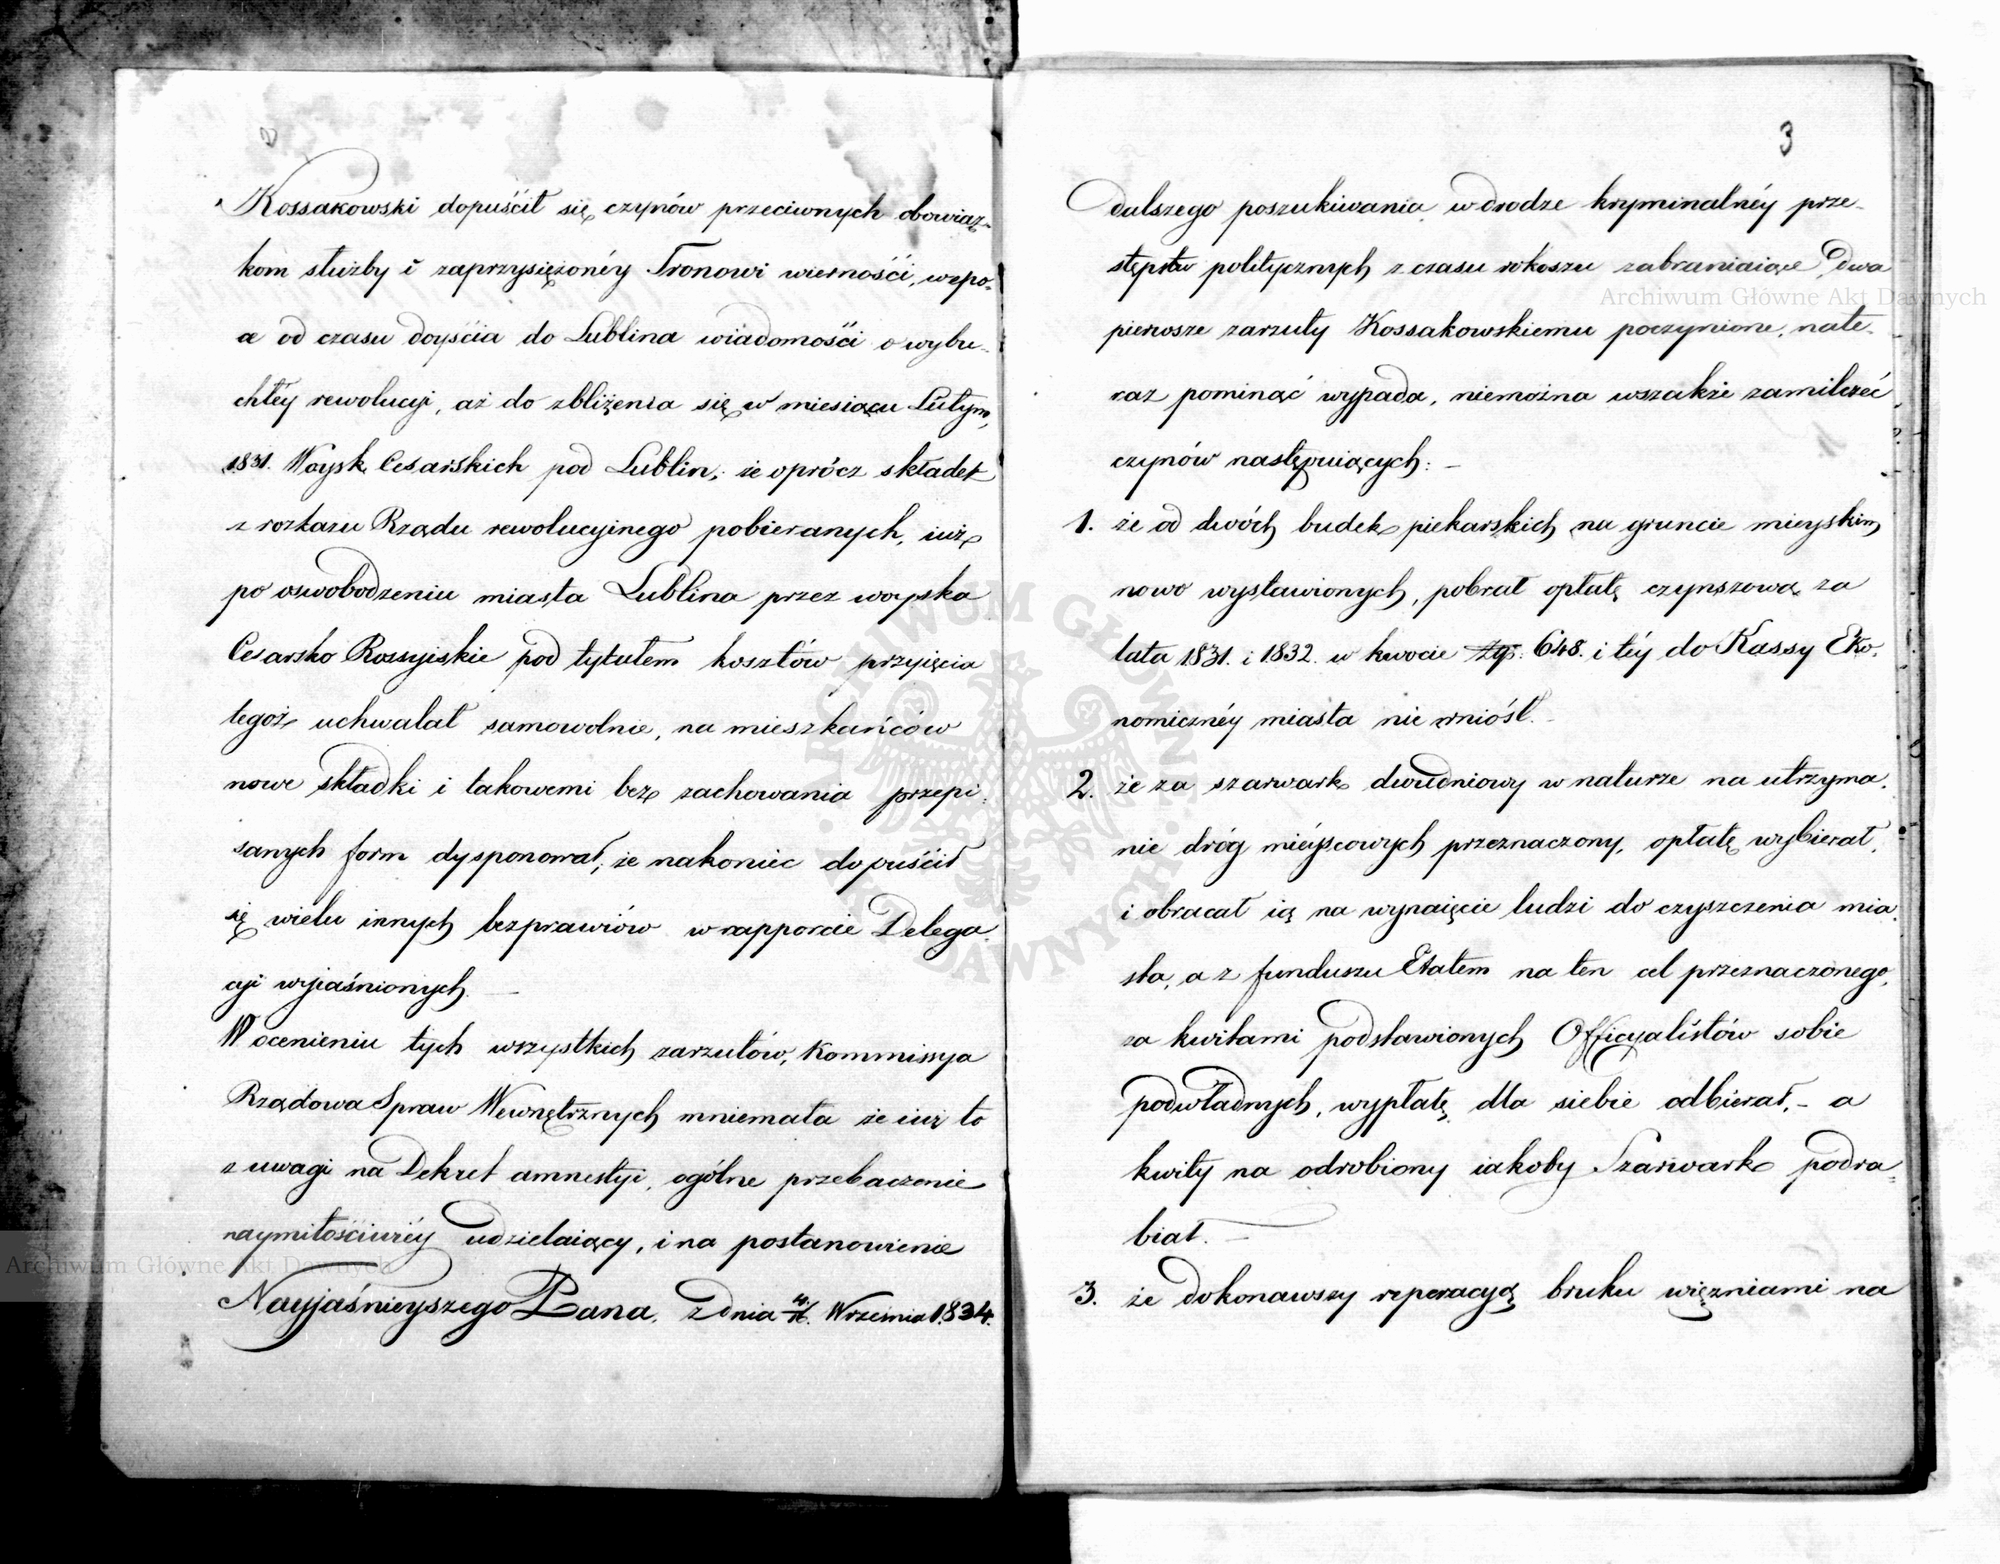 Kossakowski dopuścił się czynów przeciwnych obowiąz-
kom służby i zaprzysiężonéy Tronowi wierności, wepo-
a od czasu doyścia do Lublina wiadomości o wybu-
chłéy rewolucyi, aż do zbliżenia się w miesiącu Lutym,
1831. Woysk Cesarskich pod Lublin; że oprócz składek
z rozkazu Rządu rewolucyinego pobieranych, iuż
po oswobodzeniu miasta Lublina przez woyska
Cesarsko Rossyiskie pod tytułem kosztów przyięcia
tegoż uchwalał samowolnie, na mieszkańców
nowe składki i takowemi bez zachowania przepi-
sanych form dysponował, że nakoniec dopuścił
się wielu innych bezprawiów w rapporcie Delega-
cyi wyiaśnionych. —
W ocenieniu tych wszystkich zarzutów, Kommissya
Rządowa Spraw Wewnętrznych mniemała że iuż to
z uwagi na Dekret amnestyi, ogólne przebaczenie
naymiłościwiéy udzielaiący, i na postanowienie
Nayjaśnieyszego Pana, z dnia 4/16. Września 1834.
3
dalszego poszukiwania w drodze kryminalnéy prze-
stępstw politycznych z czasu rokoszu zabraniaiące, dwa
pierwsze zarzuty Kossakowskiemu poczynione, nate-
raz pominąć wypada, niemożna wszakże zamilczeć
czynów następuiących: —
1. że od dwóch budek piekarskich na gruncie mieyskim
nowo wystawionych, pobrał opłatę czynszową za
lata 1831. i 1832. w kwocie złp. 648. i téy do Kassy Eko-
nomicznéy miasta nie wniósł. —
2. że za szarwark dwudniowy w naturze na utrzyma-
nie dróg mieyscowych przeznaczony, opłatę wybierał,
i obracał ią na wynaięcie ludzi do czyszczenia mia-
sta, a z funduszu Etatem na ten cel przeznaczonego,
za kwitami podstawionych Officyalistów sobie
podwładnych, wypłatę dla siebie odbierał, — a
kwity na odrobiony iakoby Szarwark podra-
biał. —
3. że dokonawszy reperacyą bruku więzniami na
Archiwum Główne Akt Dawnych
Archiwum Główne Akt Dawnych
ARCHIWUM GŁÓWNE AKT DAWNYCH